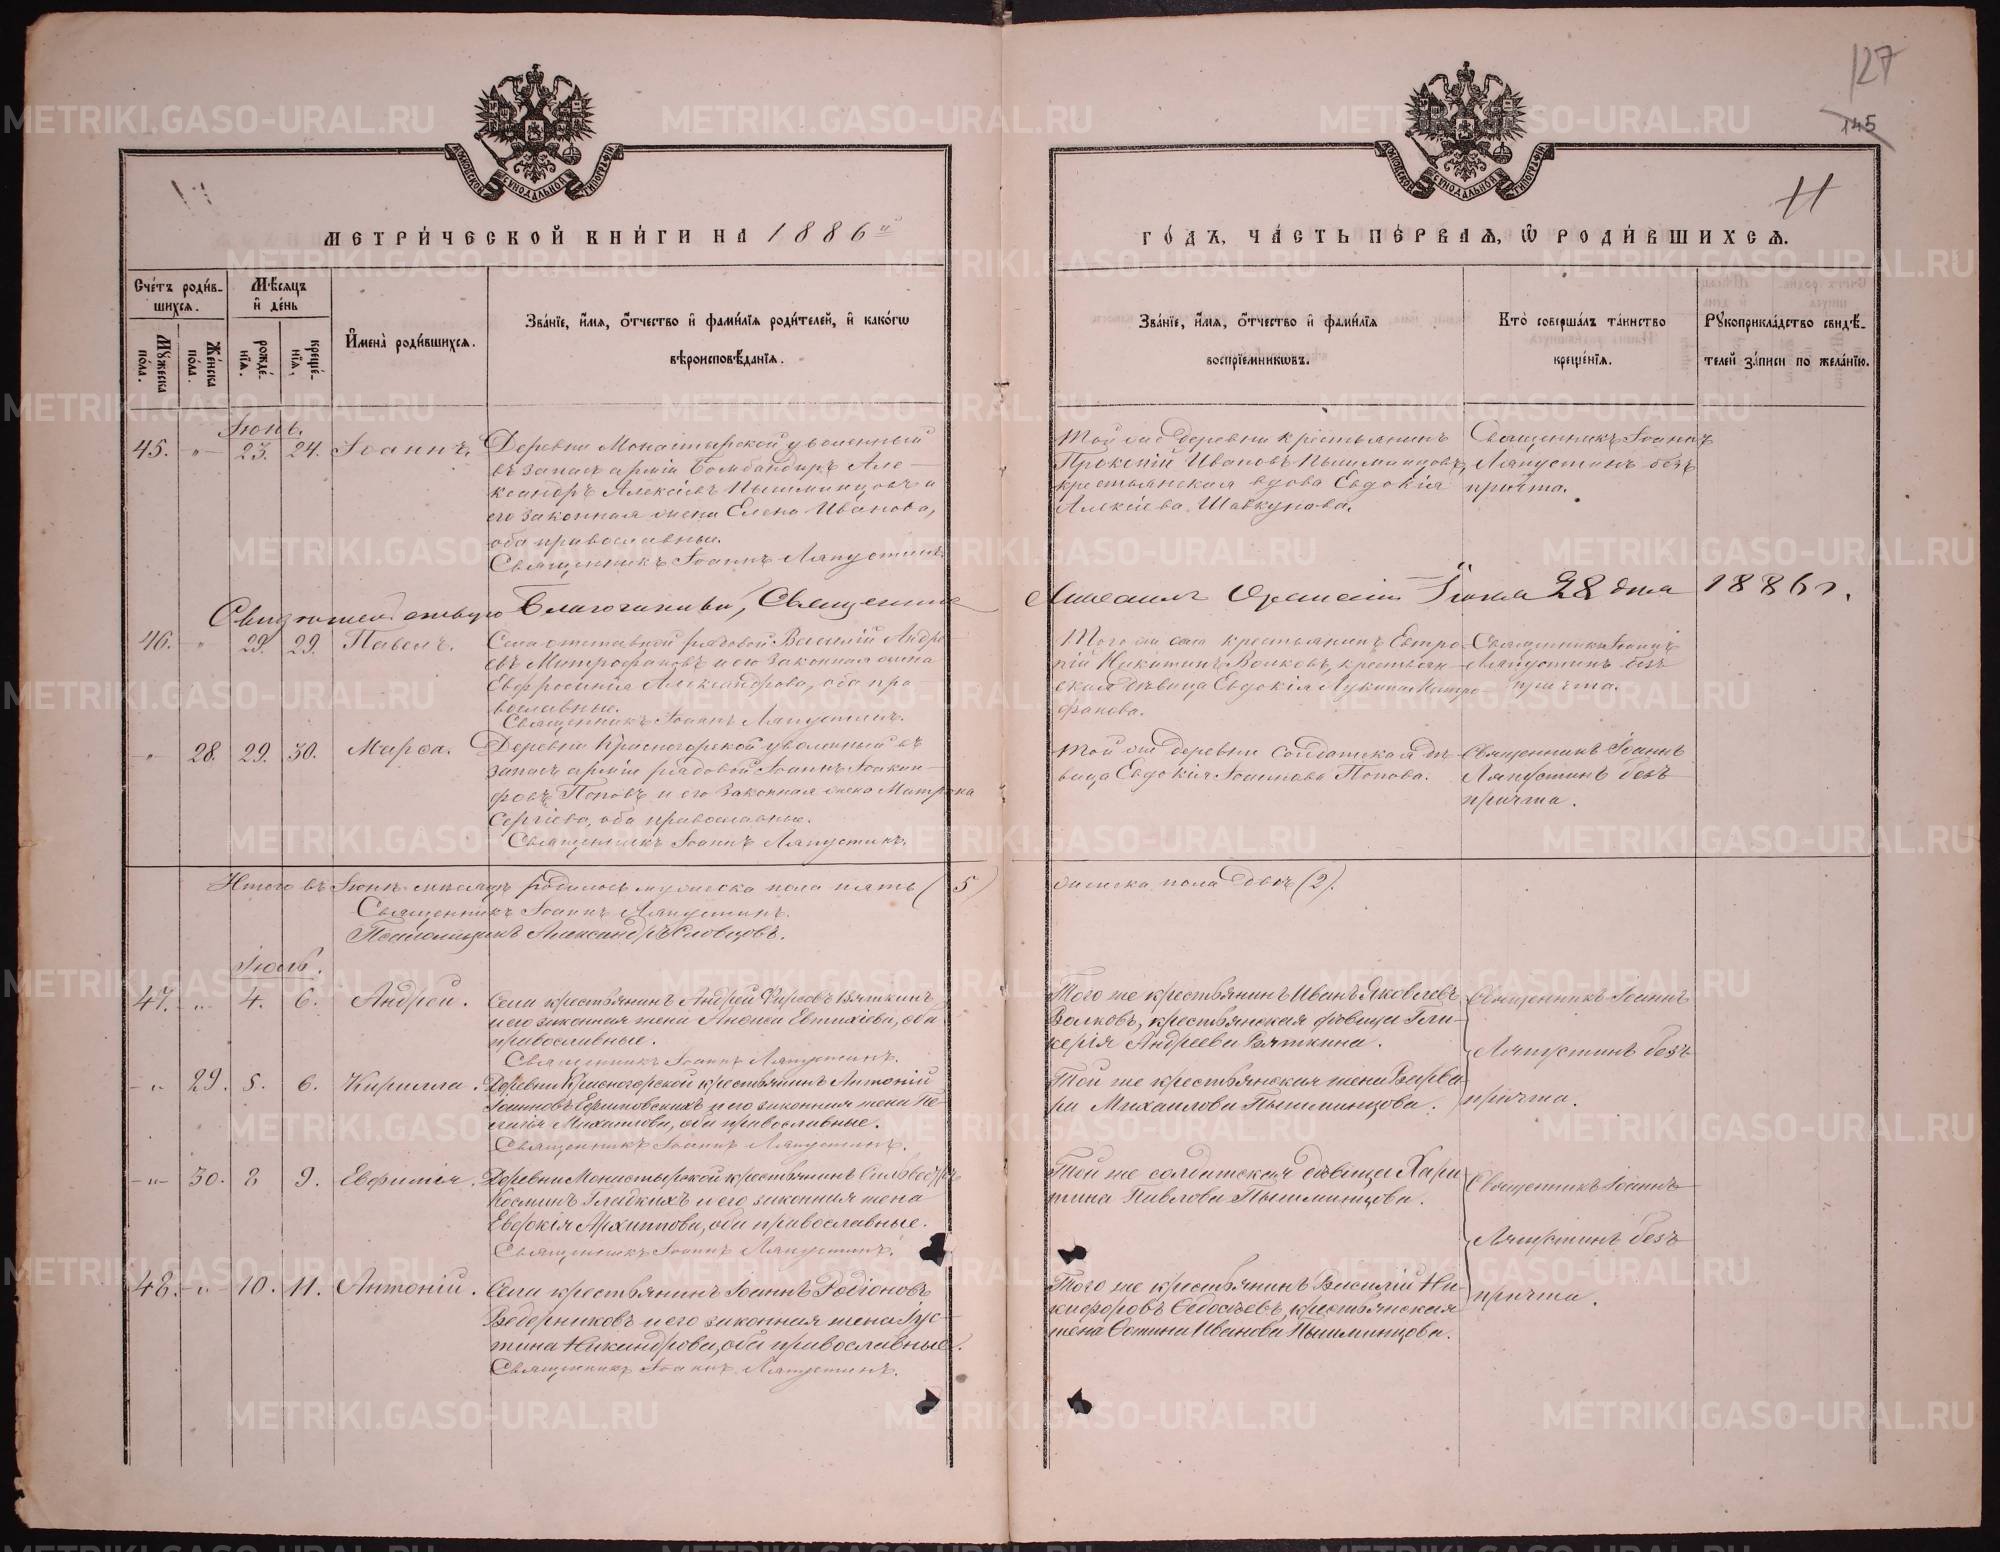 127
145
11
МЕТРИЧЕСКОЙ КНИГИ НА 1886й
ГОДЪ, ЧАСТЬ ПЕРВАЯ, Ѿ РОДИВШИХСЯ.
Счетъ родив-
шихся.
Мѣсяцъ
и день
Мужеска пола.
Женска пола.
рожденія.
крещенія.
Имена родившихся.
Званіе, имя, отчество и фамилія родителей, и какогѡ
вѣроисповѣданія.
Званіе, имя, отчество и фамилія
воспріемниковъ.
Кто совершалъ таинство
крещенія.
Рукоприкладство свидѣ-
телей записи по желанію.
Іюнь.
45. " 23. 24. Іоаннъ.
Деревни Монастырской уволенный
въ запасъ арміи Бомбандиръ Але-
ксандръ Алексіевъ Пышминцовъ и
его законная жена Елена Иванова,
оба православные.
Священникъ Іоаннъ Ляпустинъ.
Той же деревни крестьянинъ
Ивановъ Пышминцовъ,
крестьянская вдова Евдокія
Алексіева Шавкунова.
Священникъ Іоаннъ
Ляпустинъ безъ
причта.
Благочинный, Священникъ
Іюня 28 дня 1886 г.
46. " 29. 29. Павелъ.
Села отставной рядовой Василій Андре-
евъ Митрофановъ и его законная жена
Евфросинія Александрова, оба пра-
вославные.
Священникъ Іоаннъ Ляпустинъ.
Того же села крестьянинъ Евтро-
пій Никитинъ Волковъ, крестьян-
ская дѣвица Евдокія Лукина Митро-
фанова.
Священникъ Іоаннъ
Ляпустинъ безъ
причта.
" 28. 29. 30. Марѳа.
Деревни Красногорской уволенный въ
запасъ арміи рядовой Іоаннъ Іоаки-
мовъ Поповъ и его законная жена Матрона
Сергіева, оба православные.
Священникъ Іоаннъ Ляпустинъ.
Той же деревни солдатская дѣ-
вица Евдокія Іоаннова Попова.
Священникъ Іоаннъ
Ляпустинъ безъ
причта.
Итого въ Іюнѣ мѣсяцѣ родилось мужеска пола пять (5)
женска пола двѣ (2).
Священникъ Іоаннъ Ляпустинъ.
Псаломщикъ Александръ Словцовъ.
Іюль.
47. " 4. 6. Андрей.
Села крестьянинъ Андрей Фирсовъ Вяткинъ
и его законная жена Анфиса Евтихіева, оба
православные.
Священникъ Іоаннъ Ляпустинъ.
Того же крестьянинъ Иванъ Яковлевъ
Волковъ, крестьянская дѣвица Гли-
керія Андреева Вяткина.
Священникъ Іоаннъ
Ляпустинъ безъ
причта.
" 29. 5. 6. Кирилла.
Деревни Красногорской крестьянинъ Антоній
Іоанновъ и его законная жена Пе-
лагія Михаилова, оба православные.
Священникъ Іоаннъ Ляпустинъ.
Той же крестьянская жена Варва-
ра Михаилова Пышминцова.
" 30. 8 9. Евфимія.
Деревни Монастырской крестьянинъ
Косминъ Гладкихъ и его законная жена
Евдокія Архиппова, оба православные.
Священникъ Іоаннъ Ляпустинъ.
Той же солдатская дѣвица Хари-
тина Павлова Пышминцова.
Священникъ Іоаннъ
Ляпустинъ безъ
причта.
48. " 10. 11. Антоній.
Села крестьянинъ Іоаннъ Родіоновъ
Ведерниковъ и его законная жена Іус-
тина Никандрова, оба православные.
Священникъ Іоаннъ Ляпустинъ.
Того же крестьянинъ Василій Ни-
кифоровъ Ѳедосѣевъ, крестьянская
жена Иванова Пышминцова.
METRIKI.GASO-URAL.RU